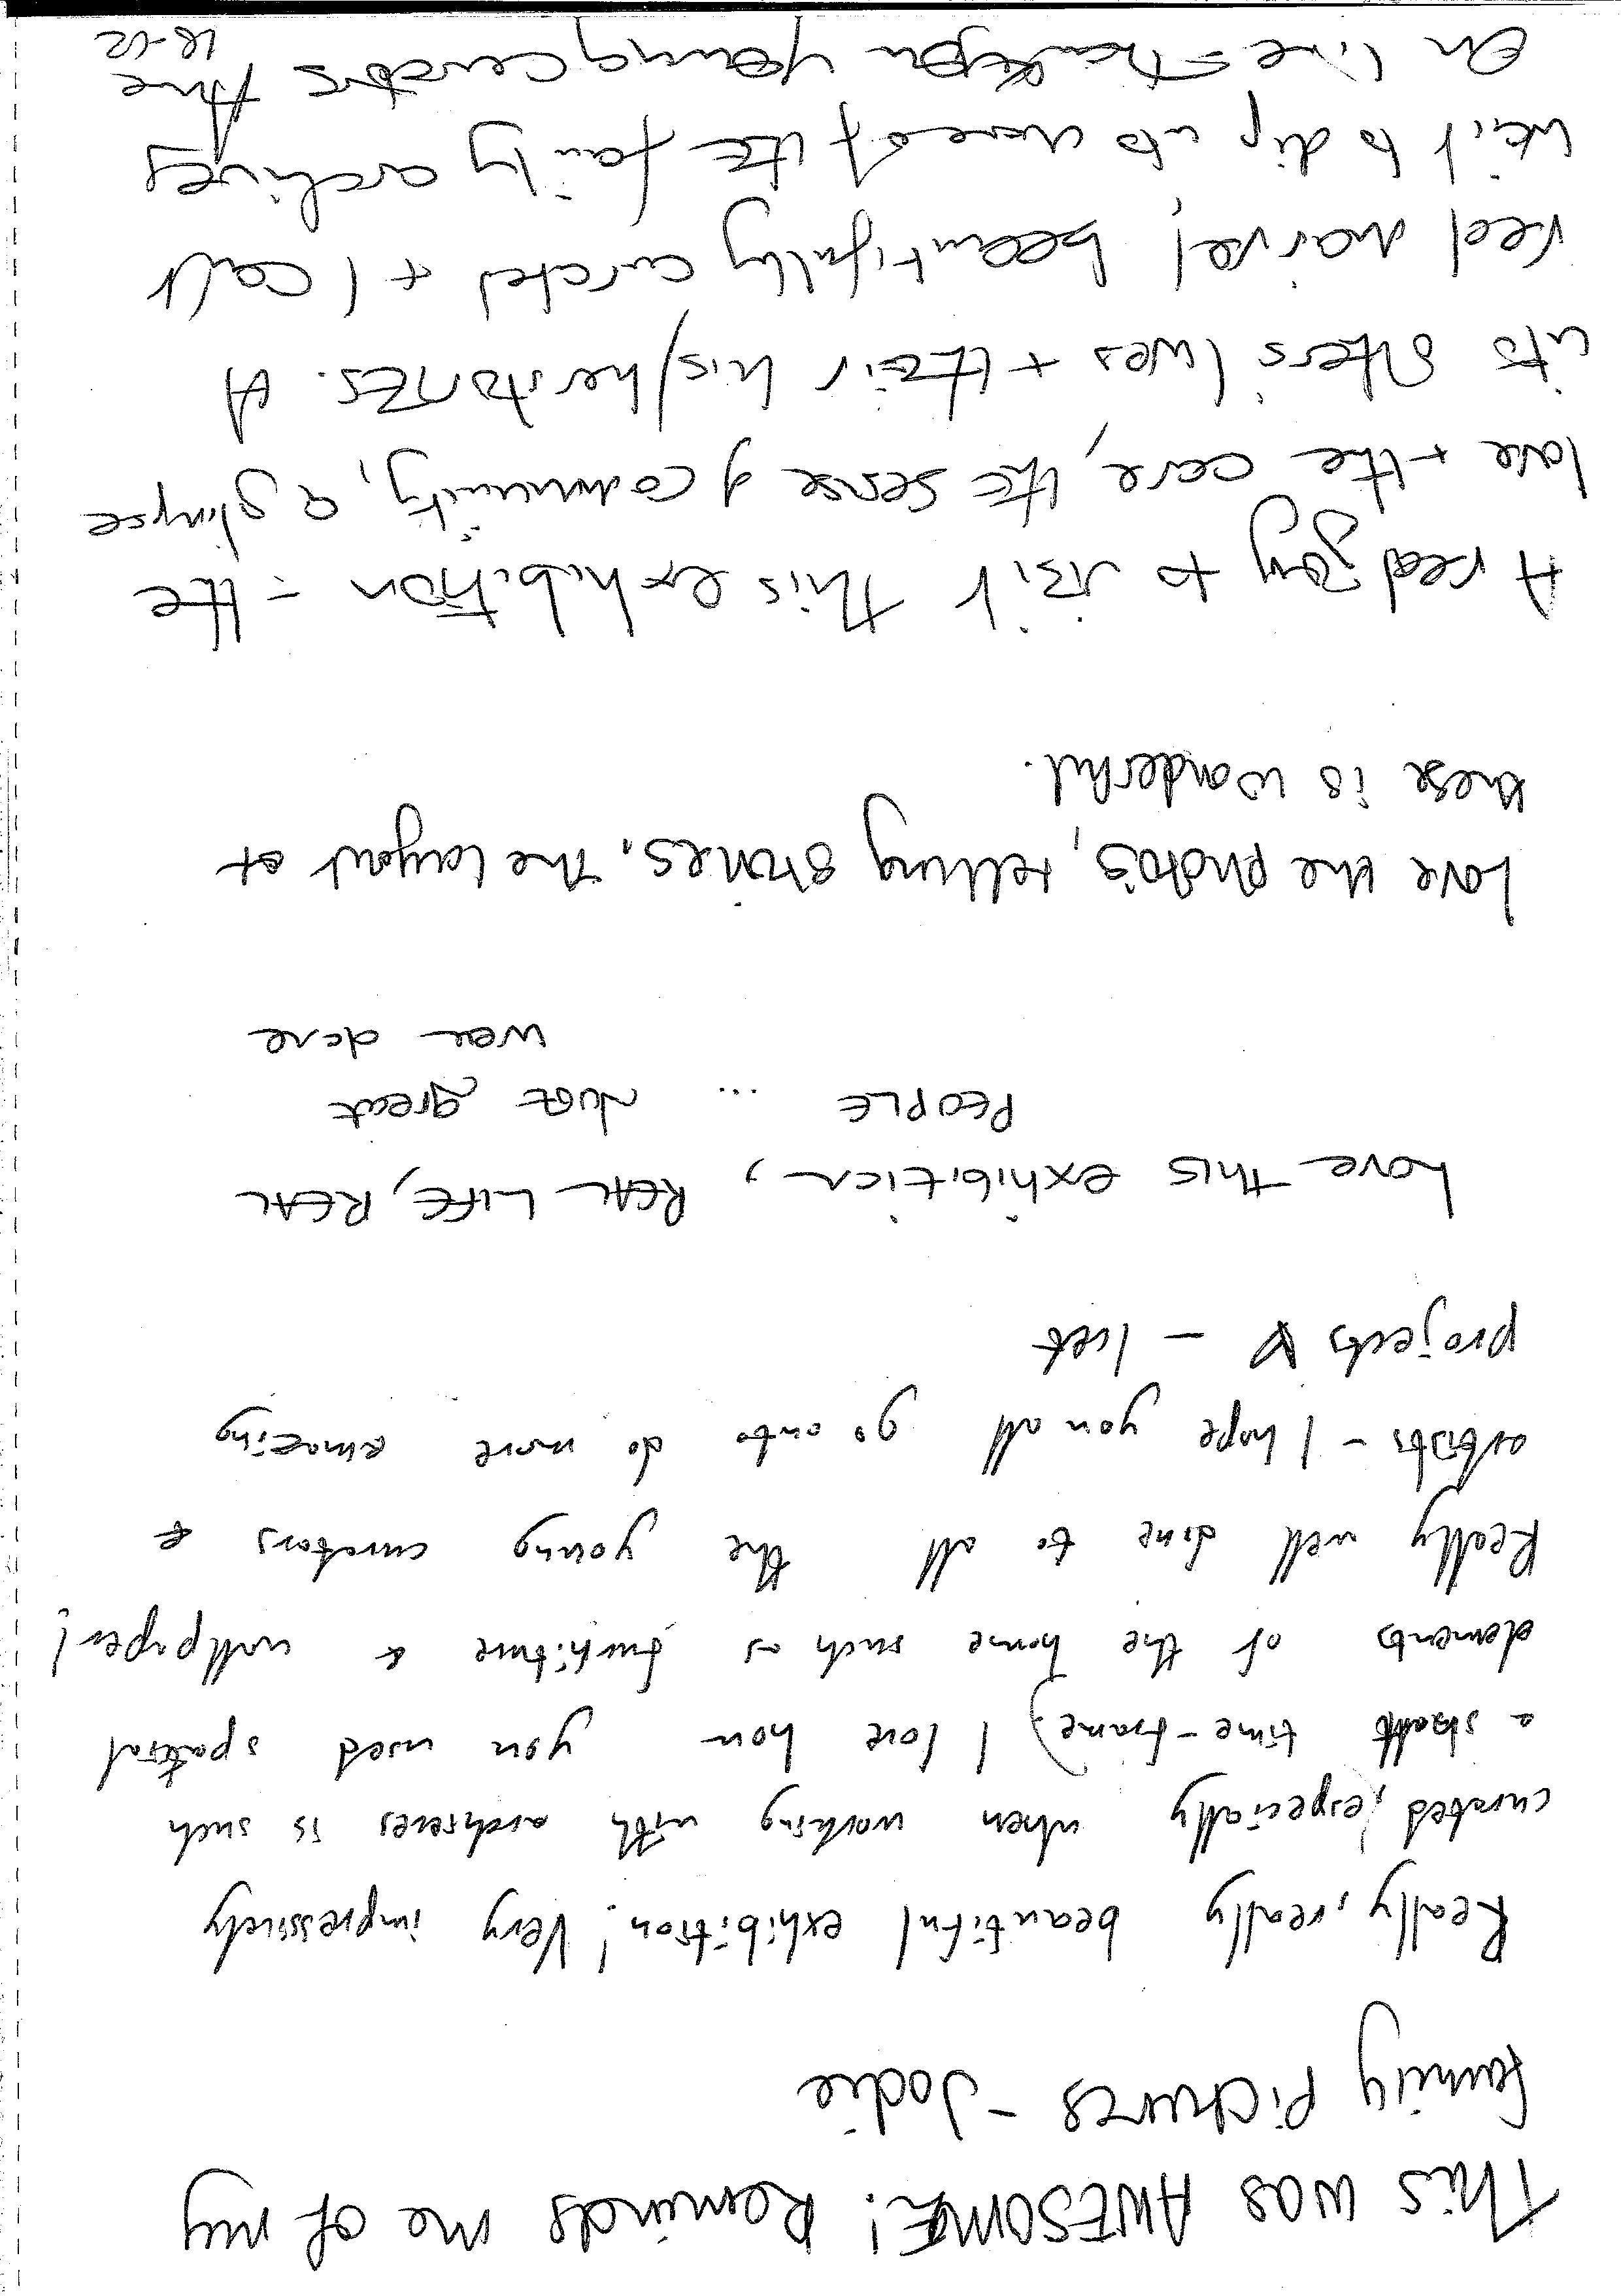 This was AWESOME! Reminds me of my
family pictures - Jodie
Really, really beautiful exhibition! Very impressively
curated, especially when working with archives is such
a short time-frame) I love how you used spatial
elements of the home such as furniture & wallpaper!
Really well done to all the young curators &
artists - I hope you all go onto do more amazing
projects ♡ -
Love this exhibition, REAL LIFE, REAL
PEOPLE ... Just great
well done
Love the photo's, telling stories. The layout of
these is wonderful.
A real joy to visit this exhibition - the
love + the care, the sense of community, a glimpse
into others lives + their his/herstories. A
real marvel, beautifully curated + I can't
wait to dip into more of the family archives
On line - Thank you young curators
18-12